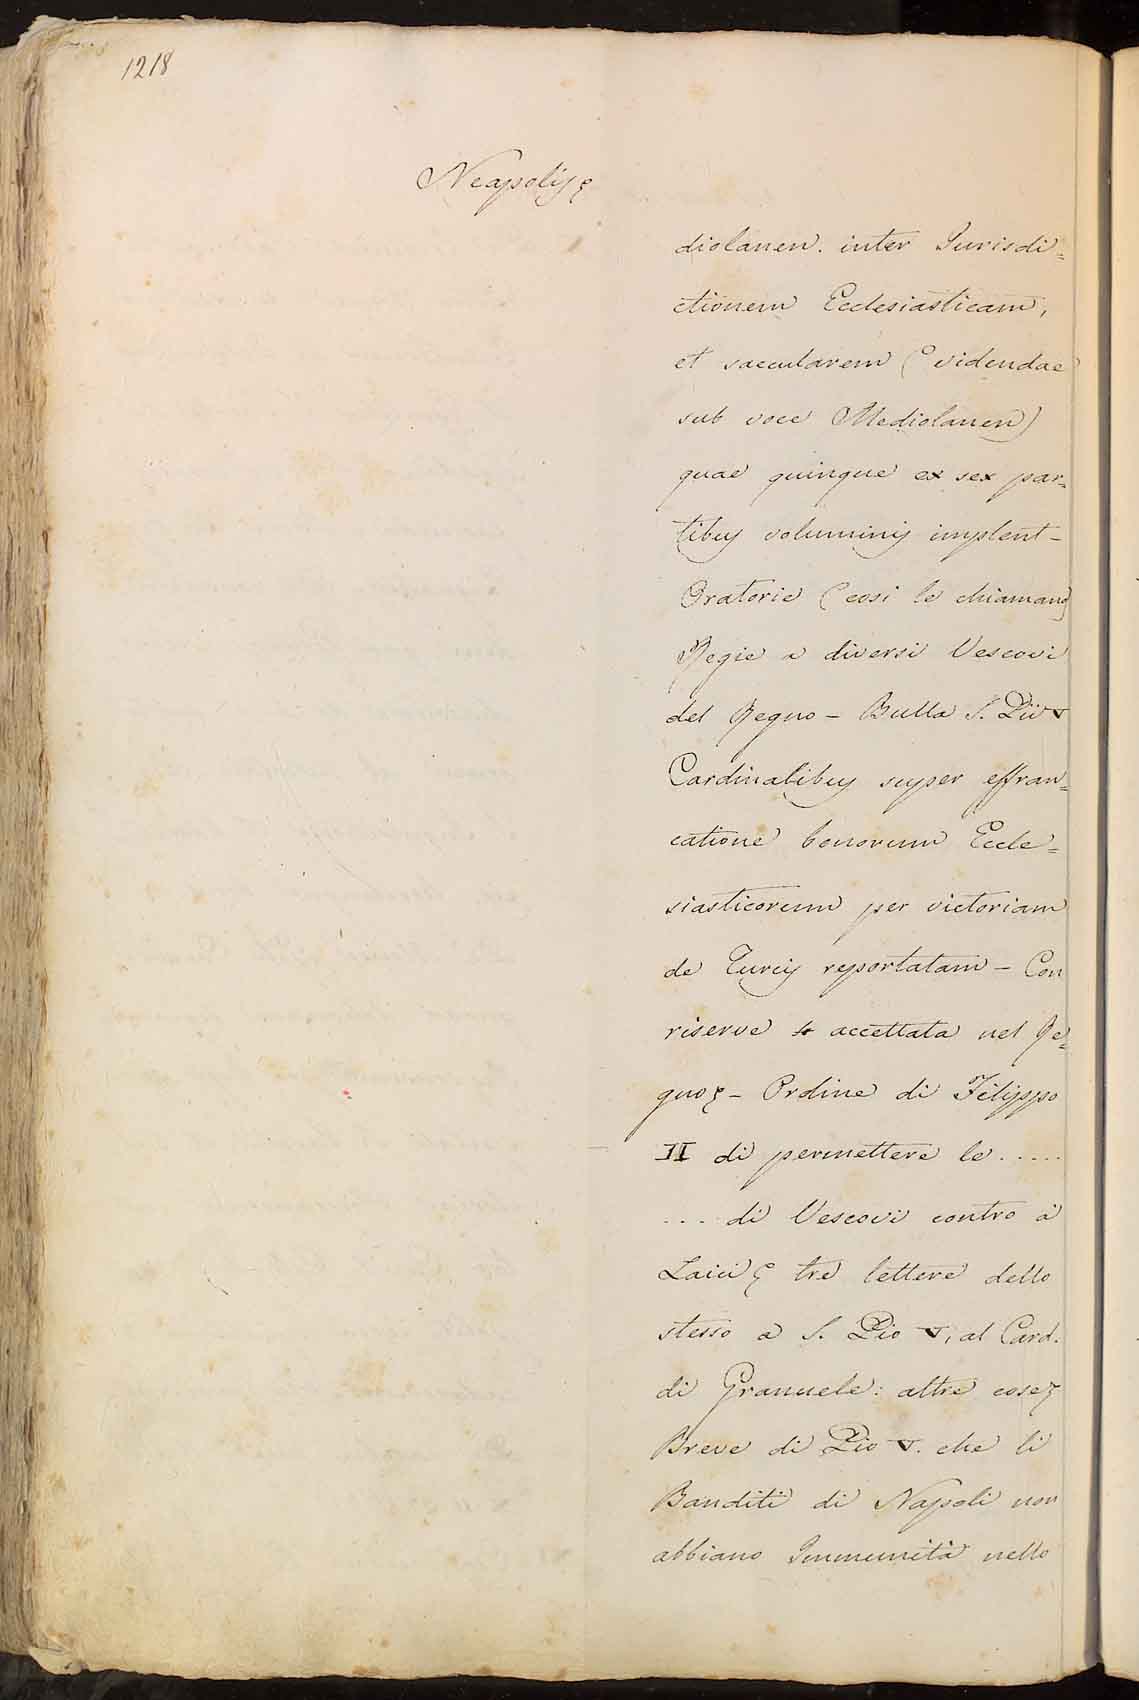 1218
Neapolis
diolanen. inter Jurisdi=
ctionem Ecclesiasticam,
et saecularem (videndae
sub voce Mediolanen)
quae quinque ex sex par=
tibus voluminis implent -
Oratorie (cosi le chiamano)
Regie a diversi Vescovi
del Regno - Bulla S. Pii V
Cardinalibus super effran=
catione bonorum Eccle=
siasticorum per victoriam
de Turcis reportatam - Con
riserve accettata nel Re=
gno - Ordine di Filippo
II di permettere le .....
.... di Vescovi contro à
Laici tre lettere dello
stesso a S. Pio V, al Card.
di Granuele: altre cose
Breve di Pio V. che li
Banditi di Napoli non
abbiano Immunità nello